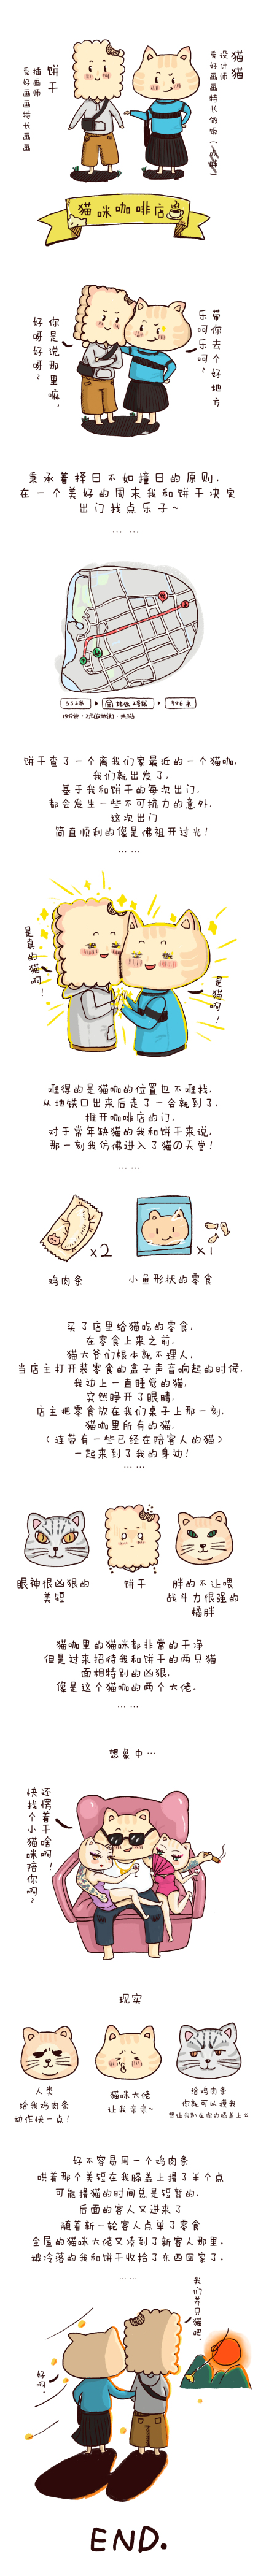 饼干
插画师
爱好画画特长画画
猫猫
设计师
爱好画画特长做饭(
猫咪咖啡店
你是说那里嘛，
好呀好呀~
带你去个好地方
乐呵乐呵~
秉承着择日不如撞日的原则，
在一个美好的周末我和饼干决定
出门找点乐子~
... ...
终
552米
地铁2号线
946米
饼干查了一个离我们家最近的一个猫咖，
我们就出发了，
基于我和饼干的每次出门，
都会发生一些不可抗力的意外，
这次出门
简直顺利的像是佛祖开过光！
... ...
是真的猫啊！
是猫啊！
难得的是猫咖的位置也不难找，
从地铁口出来后走了一会就到了，
推开咖啡店的门，
对于常年缺猫的我和饼干来说，
那一刻我仿佛进入了猫の天堂！
... ...
x2
x1
鸡肉条
小鱼形状的零食
买了店里给猫吃的零食，
在零食上来之前，
猫大爷们根本就不理人，
当店主打开装零食的盒子声音响起的时候，
我边上一直睡觉的猫，
突然睁开了眼睛，
店主把零食放在我们桌子上那一刻，
猫咖里所有的猫，
（连带有一些已经在陪客人的猫）
一起来到了我的身边！
... ...
眼神很凶狠的
美短
饼干
胖的不让喂
战斗力很强的
橘胖
猫咖里的猫咪都非常的干净
但是过来招待我和饼干的两只猫
面相特别的凶狠，
像是这个猫咖的两个大佬。
... ...
想象中...
还愣着干啥啊！
快找个小猫咪陪你啊~
现实
人类
给我鸡肉条
动作快一点！
猫咪大佬
让我亲亲~
给鸡肉条
你就可以撸我
想让我趴在你的膝盖上
好不容易用一个鸡肉条
哄着那个美短在我膝盖上撸了半个点
可能撸猫的时间总是短暂的，
后面的客人又进来了
随着新一轮客人点单了零食
全屋的猫咪大佬又凑到了新客人那里。
被冷落的我和饼干收拾了东西回家了。
... ...
我们养只猫吧。
好啊。
END.